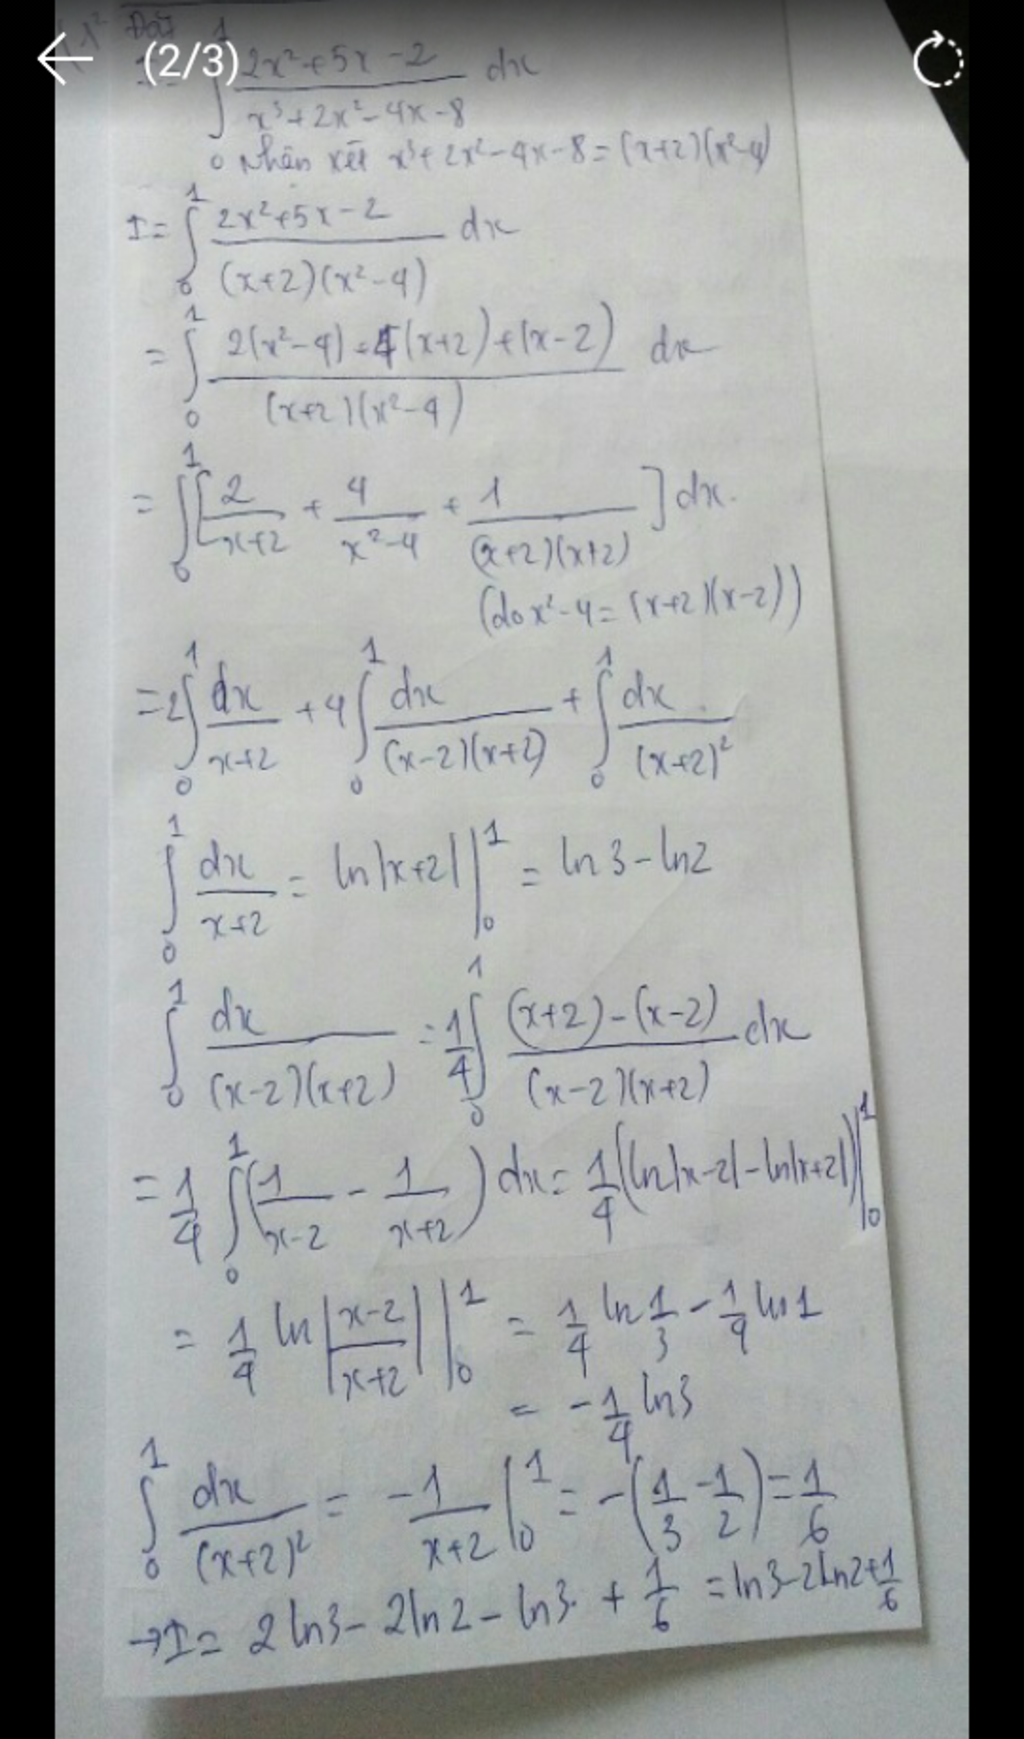 (2/3)
Đặt
∫₀¹ (2x²+5x-2)/(x³+2x²-4x-8) dx
Nhận xét x³+2x²-4x-8=(x+2)(x²-4)
I=∫₀¹ (2x²+5x-2)/((x+2)(x²-4)) dx
=∫₀¹ (2(x²-4)+4(x+2)+(x-2))/((x+2)(x²-4)) dx
=∫₀¹[2/(x+2) + 4/(x²-4) + 1/((x+2)(x+2))]dx.
(do x²-4=(x+2)(x-2))
=2∫₀¹ dx/(x+2) +4∫₀¹ dx/((x-2)(x+2)) + ∫₀¹ dx/(x+2)²
∫₀¹ dx/(x+2) = ln|x+2| |₀¹ = ln3-ln2
∫₀¹ dx/((x-2)(x+2)) = 1/4 ∫₀¹ ((x+2)-(x-2))/((x-2)(x+2)) dx
= 1/4 ∫₀¹(1/(x-2) - 1/(x+2))dx = 1/4(ln|x-2|-ln|x+2|)|₀¹
= 1/4 ln|(x-2)/(x+2)| |₀¹ = 1/4 ln 1/3 - 1/4 ln1
= -1/4 ln3
∫₀¹ dx/(x+2)² = -1/(x+2) |₀¹ = -(1/3-1/2)=1/6
→I= 2ln3-2ln2-ln3 + 1/6 =ln3-2ln2+1/6